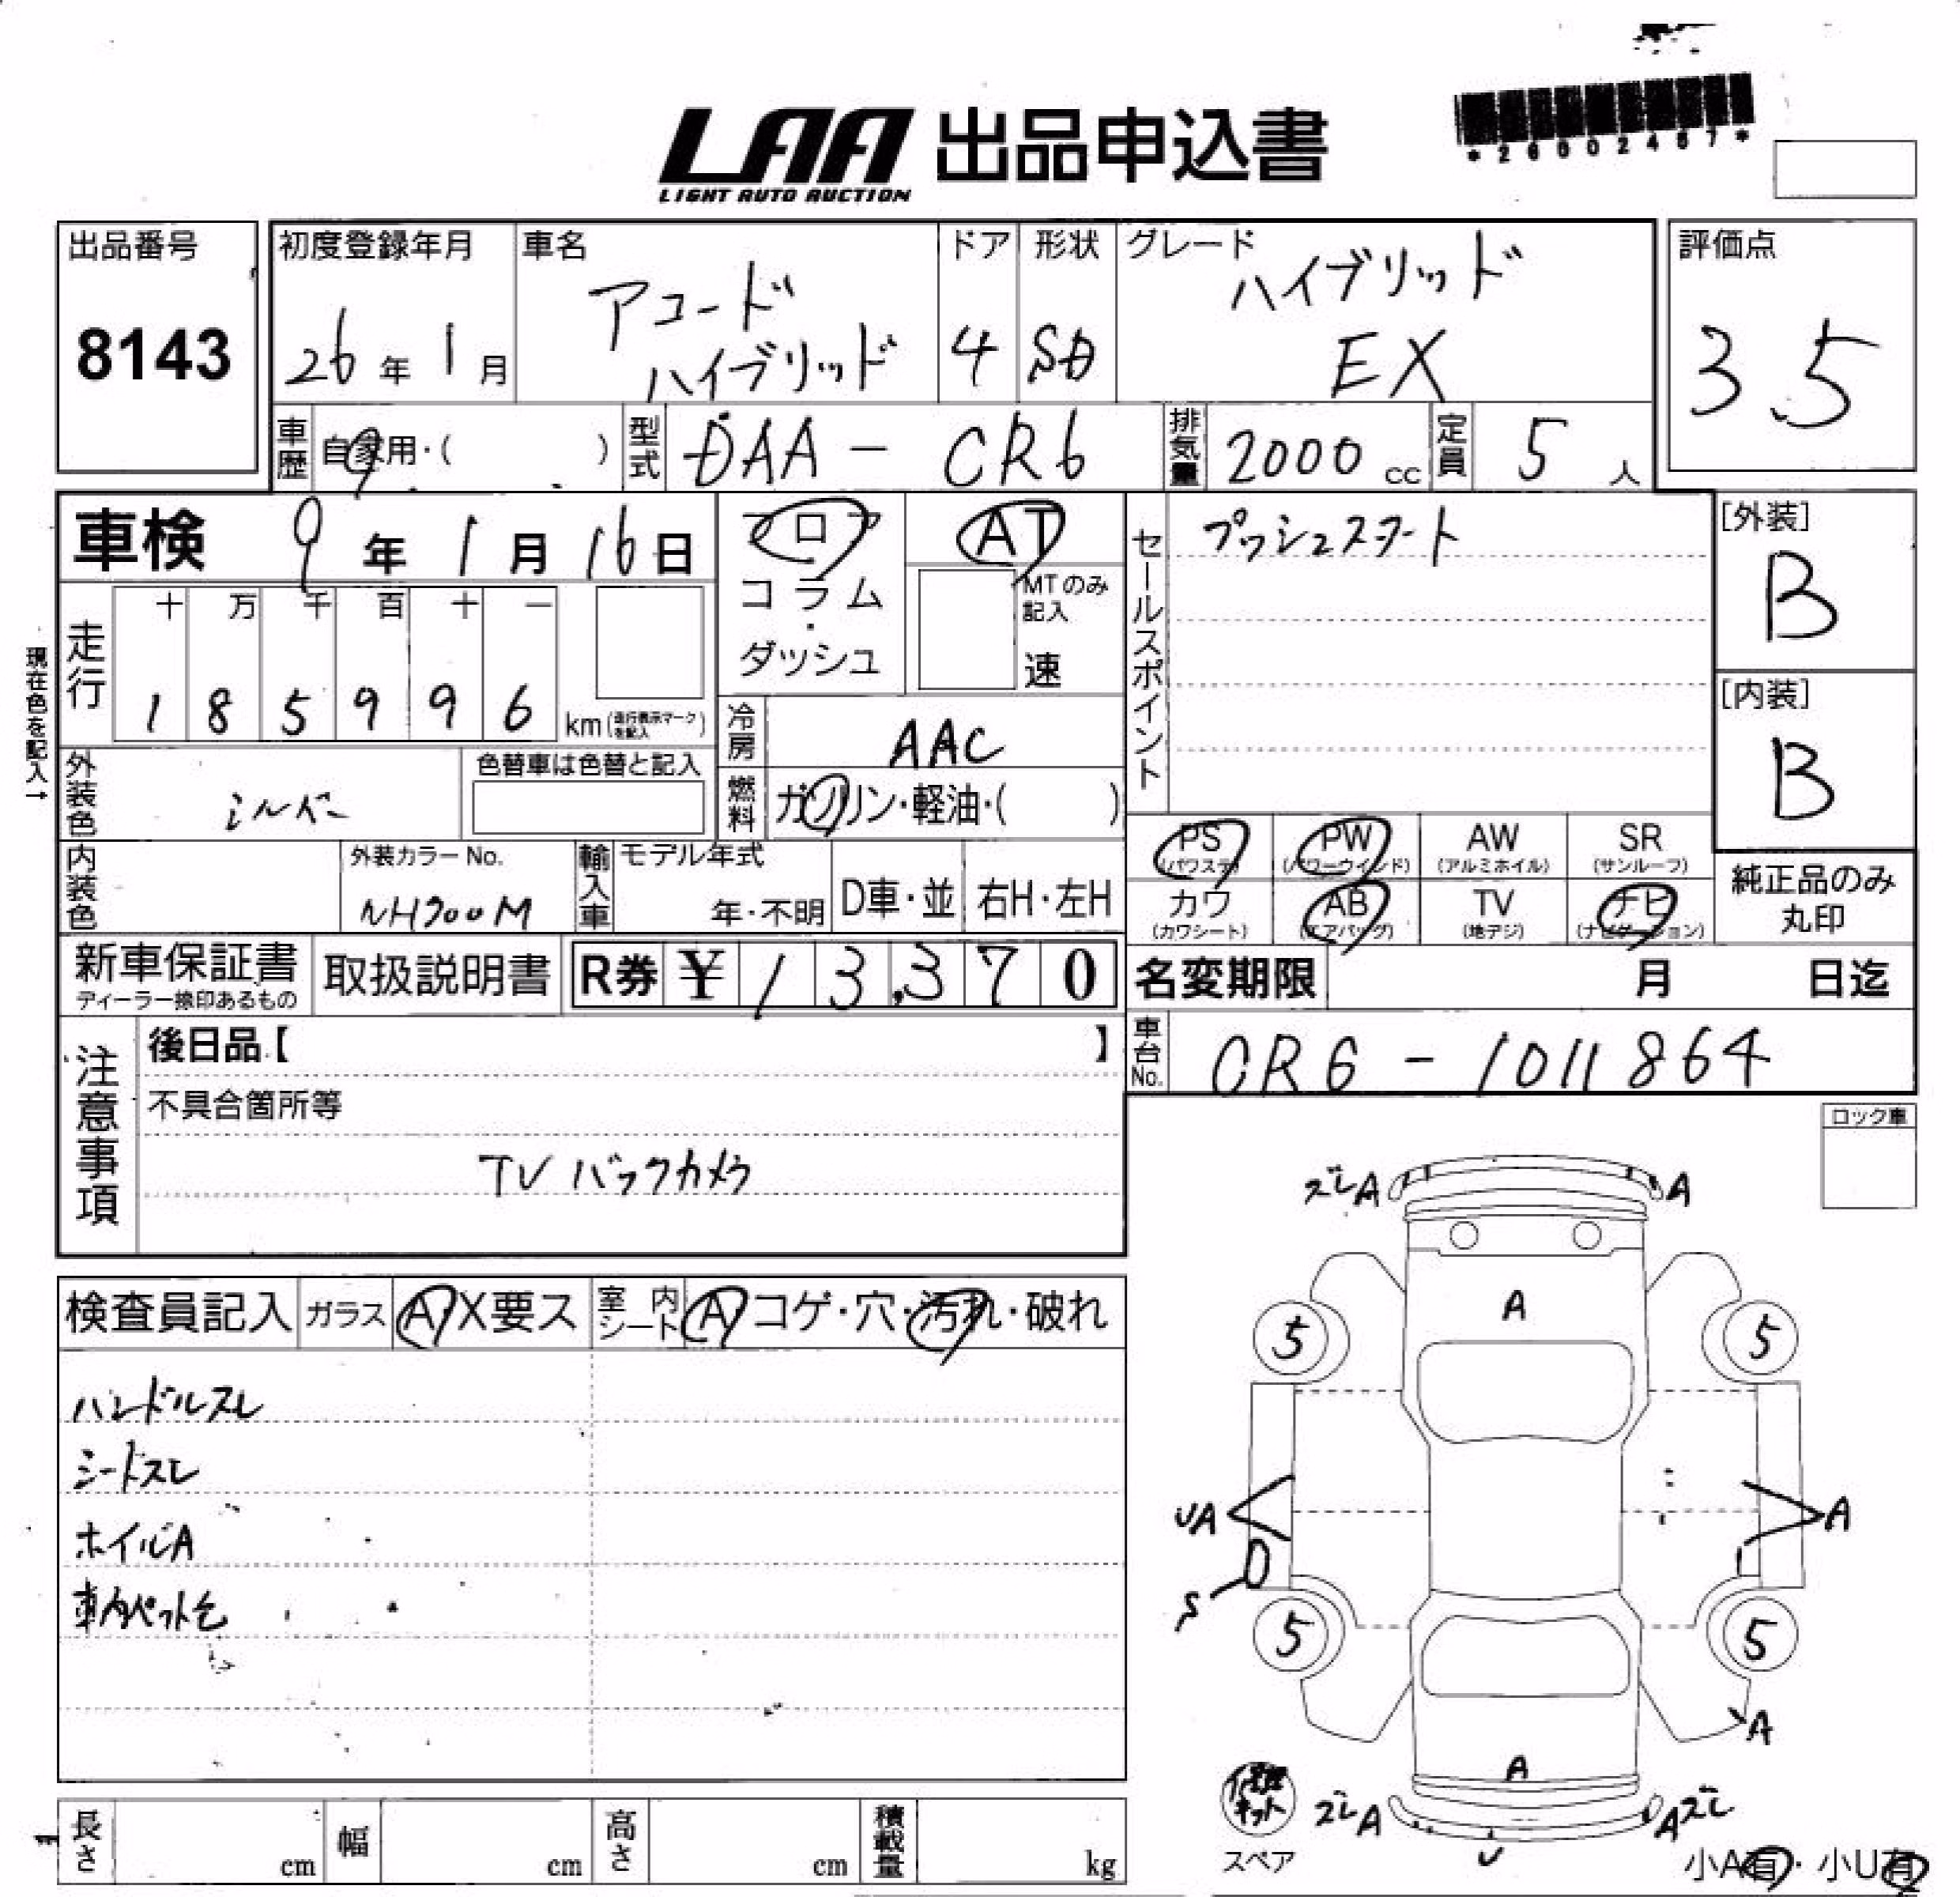 *26002467*
LAA 出品申込書
LIGHT AUTO AUCTION
出品番号
8143
初度登録年月
26年1月
車名
アコード
ハイブリッド
ドア
4
形状
SD
グレード
ハイブリッド
EX
評価点
3.5
車歴
自家用・( )
型式
DAA - CR6
排気量
2000 cc
定員
5 人
車検 9年1月16日
フロア
コラム・
ダッシュ
AT
MTのみ
記入
速
セールスポイント
プッシュスタート
[外装]
B
[内装]
B
現在色を記入→
走行
十 万 千 百 十 一
1 8 5 9 9 6 km(走行表示マークを記入)
冷房
AAC
燃料
ガソリン・軽油・( )
外装色
シルバー
色替車は色替と記入
内装色
外装カラーNo.
NH700M
輸入車
モデル年式
年・不明
D車・並
右H・左H
PS
(パワステ)
PW
(パワーウインド)
AW
(アルミホイル)
SR
(サンルーフ)
カワ
(カワシート)
AB
(エアバッグ)
TV
(地デジ)
ナビ
(ナビゲーション)
純正品のみ
丸印
新車保証書
ディーラー捺印あるもの
取扱説明書
R券 ¥13,370
名変期限 月 日迄
車台No.
CR6 - 1011864
注意事項
後日品【 】
不具合箇所等
TV バックカメラ
ロック車
検査員記入
ガラス
A・X要ス
室内シート
A・コゲ・穴・汚れ・破れ
ハンドルスレ
シートスレ
ホイルA
車内ペット毛
ズレA
A
A
5
5
UA
A
S
5
5
A
A
修理
キット
スペア
ズレA
U
Aズレ
小A有・小U有
長さ cm
幅 cm
高さ cm
積載量 kg